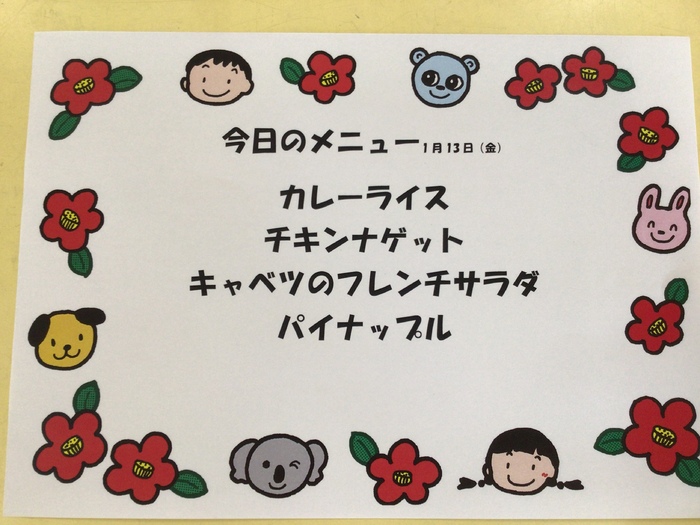 今日のメニュー1月13日（金）
カレーライス
チキンナゲット
キャベツのフレンチサラダ
パイナップル